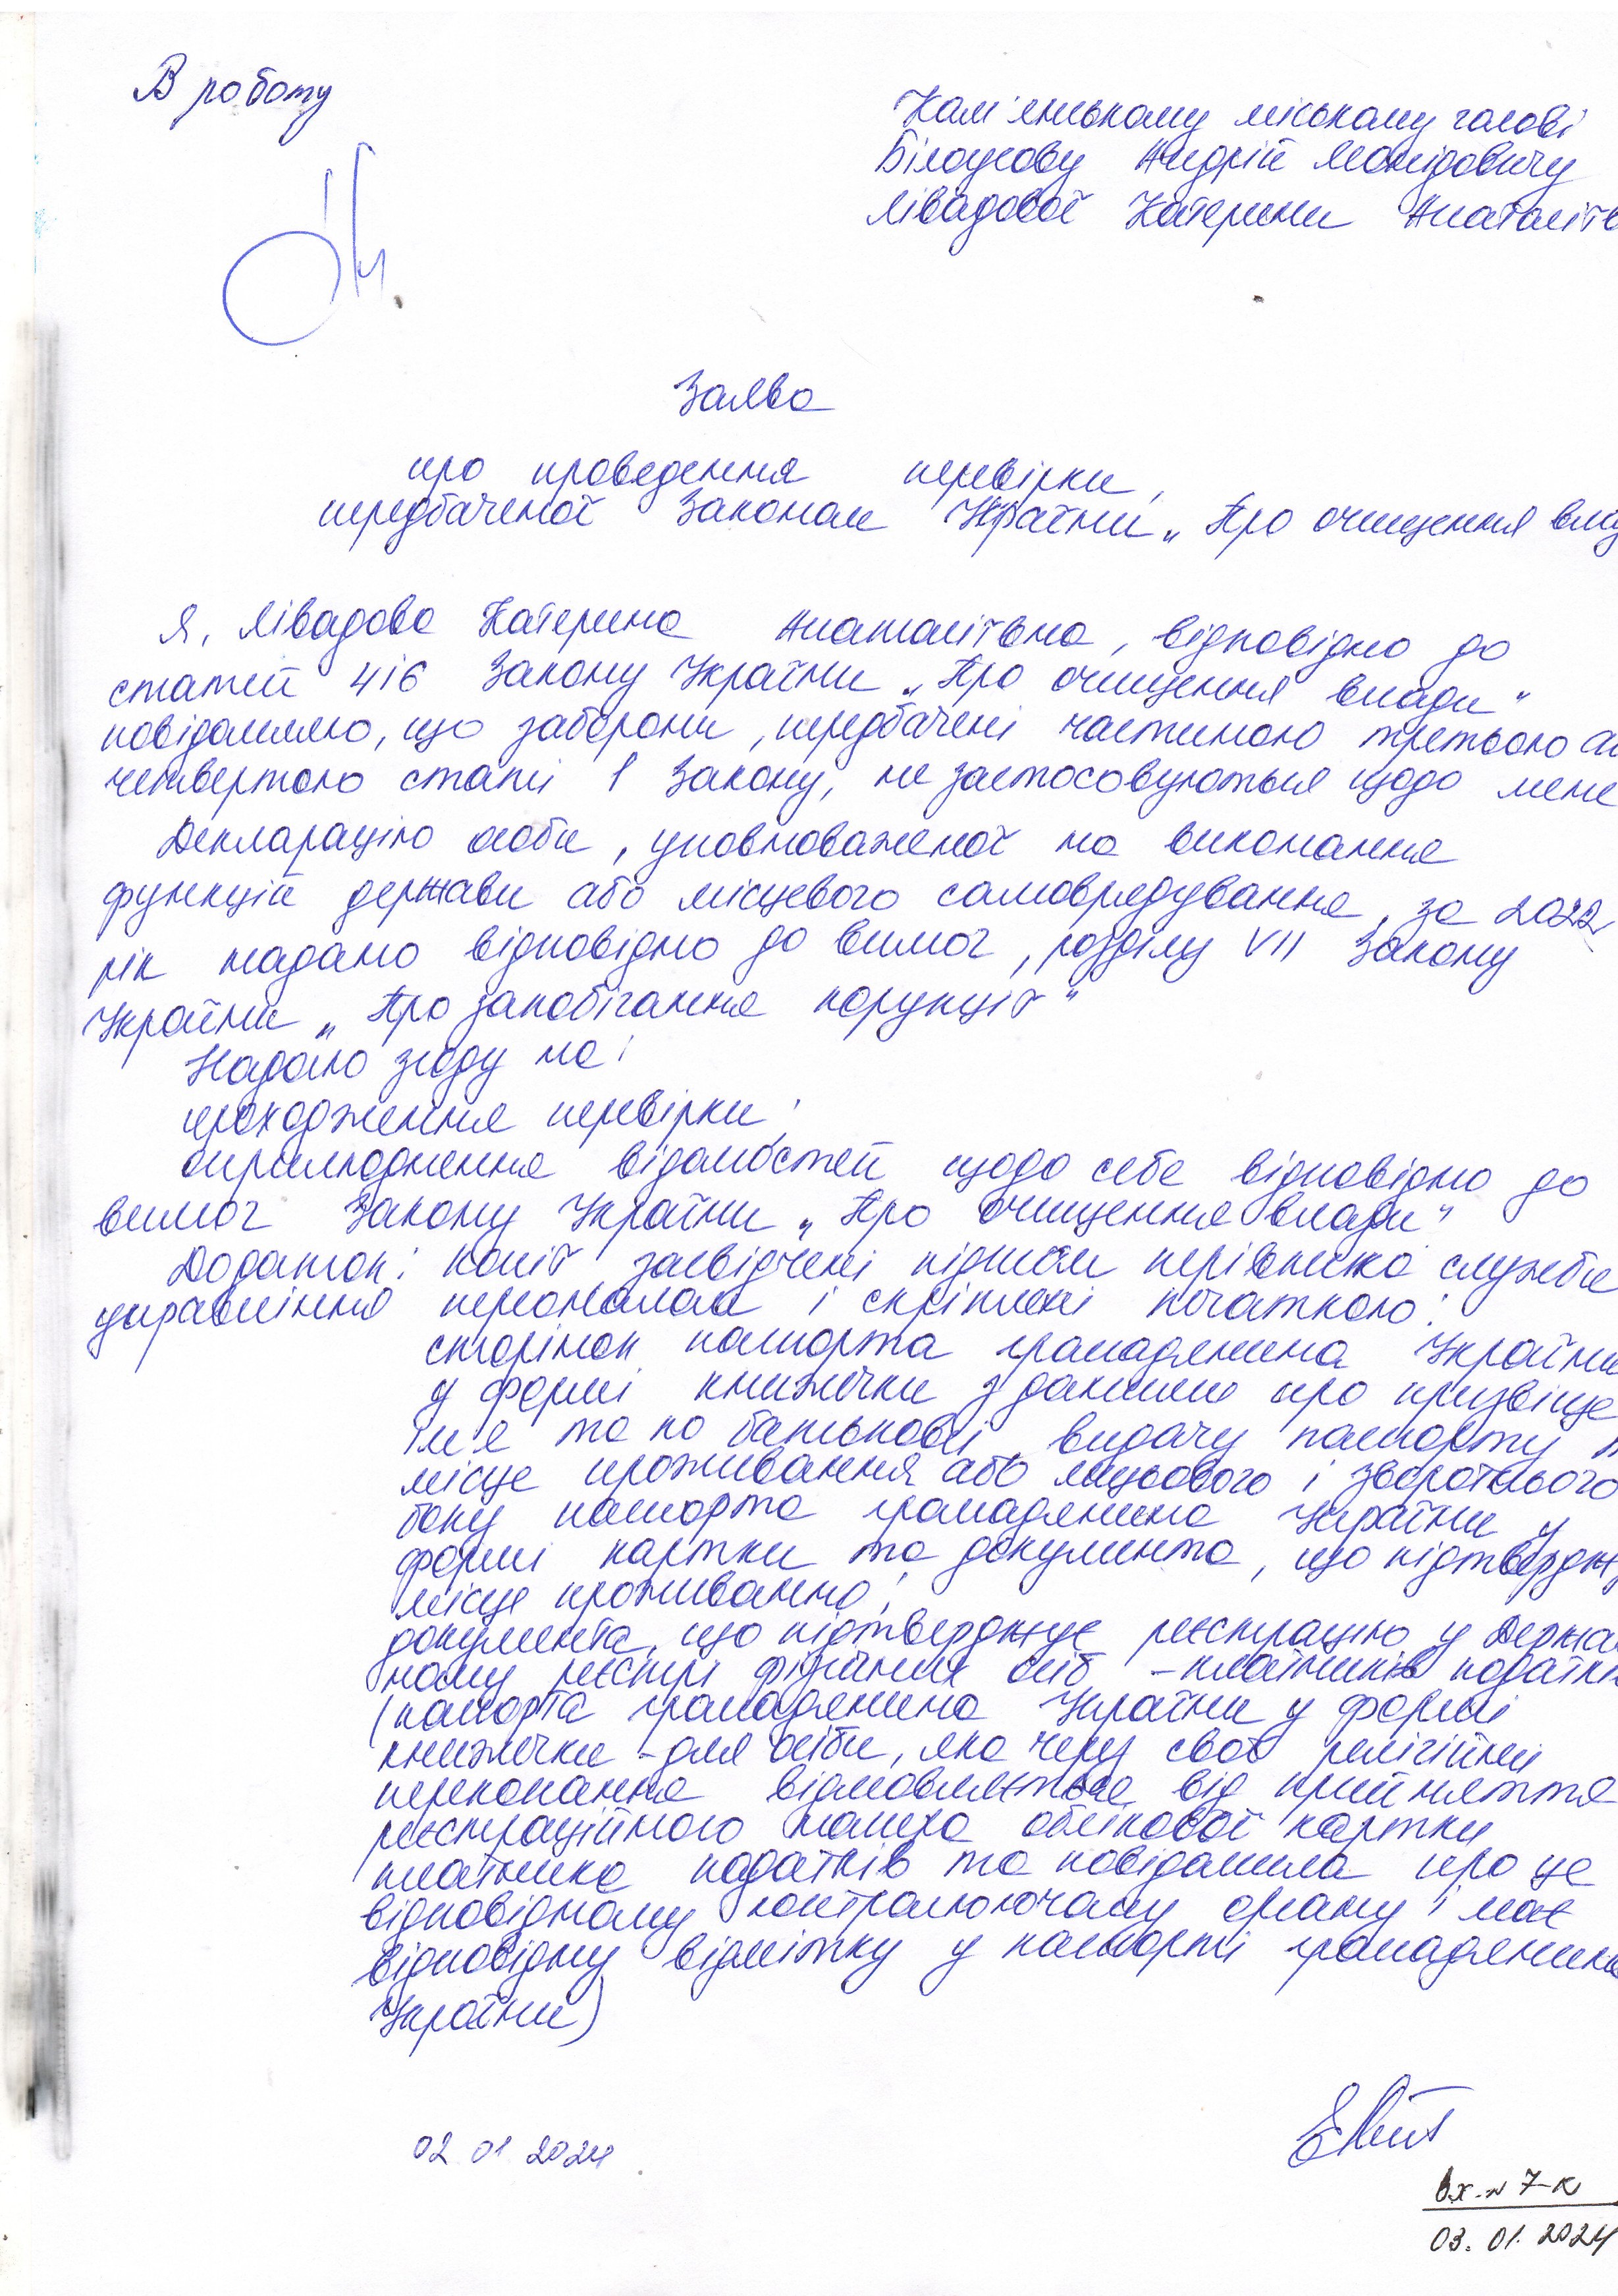 В роботу
Кам'янському міському голові
Білоусову Андрій Леонідовичу
Лівадової Катерини Анатоліїв
Заява
про проведення перевірки,
передбаченої Законом України „Про очищення вла
Я, Лівадова Катерина Анатоліївна, відповідно до
статей 4 і 6 Закону України „Про очищення влади"
повідомляю, що заборони, передбачені частиною третьою аб
четвертою статті 1 Закону, не застосовуються щодо мене
Декларацію особи, уповноваженої на виконання
функцій держави або місцевого самоврядування, за 2022
рік надано відповідно до вимог, розділу VII Закону
України „Про запобігання корупції"
Надаю згоду на:
проходження перевірки;
оприлюднення відомостей щодо себе відповідно до
вимог Закону України „Про очищення влади"
Додаток: копії засвідчені підписом керівника служби
управління персоналом і скріплені печаткою:
сторінок паспорта громадянина України
у формі книжечки з даними про прізвище
ім'я та по батькові, видачу паспорту
місце проживання або лицьового і зворотнього
боку паспорта громадянина України у
формі картки та документа, що підтверджу
місце проживанно;
документа, що підтверджує реєстрацію у Держав
ному реєстрі фізичних осіб - платників податкі
(паспорта громадянина України у формі
книжечки - для особи, яка через свої релігійні
переконання відмовляється від прийняття
реєстраційного номера облікової картки
платника податків та повідомила про це
відповідному контролюючому органу і має
відповідну відмітку у паспорті громадянина
України)
02 01 2024
вх.№ 7-К
03. 01. 2024